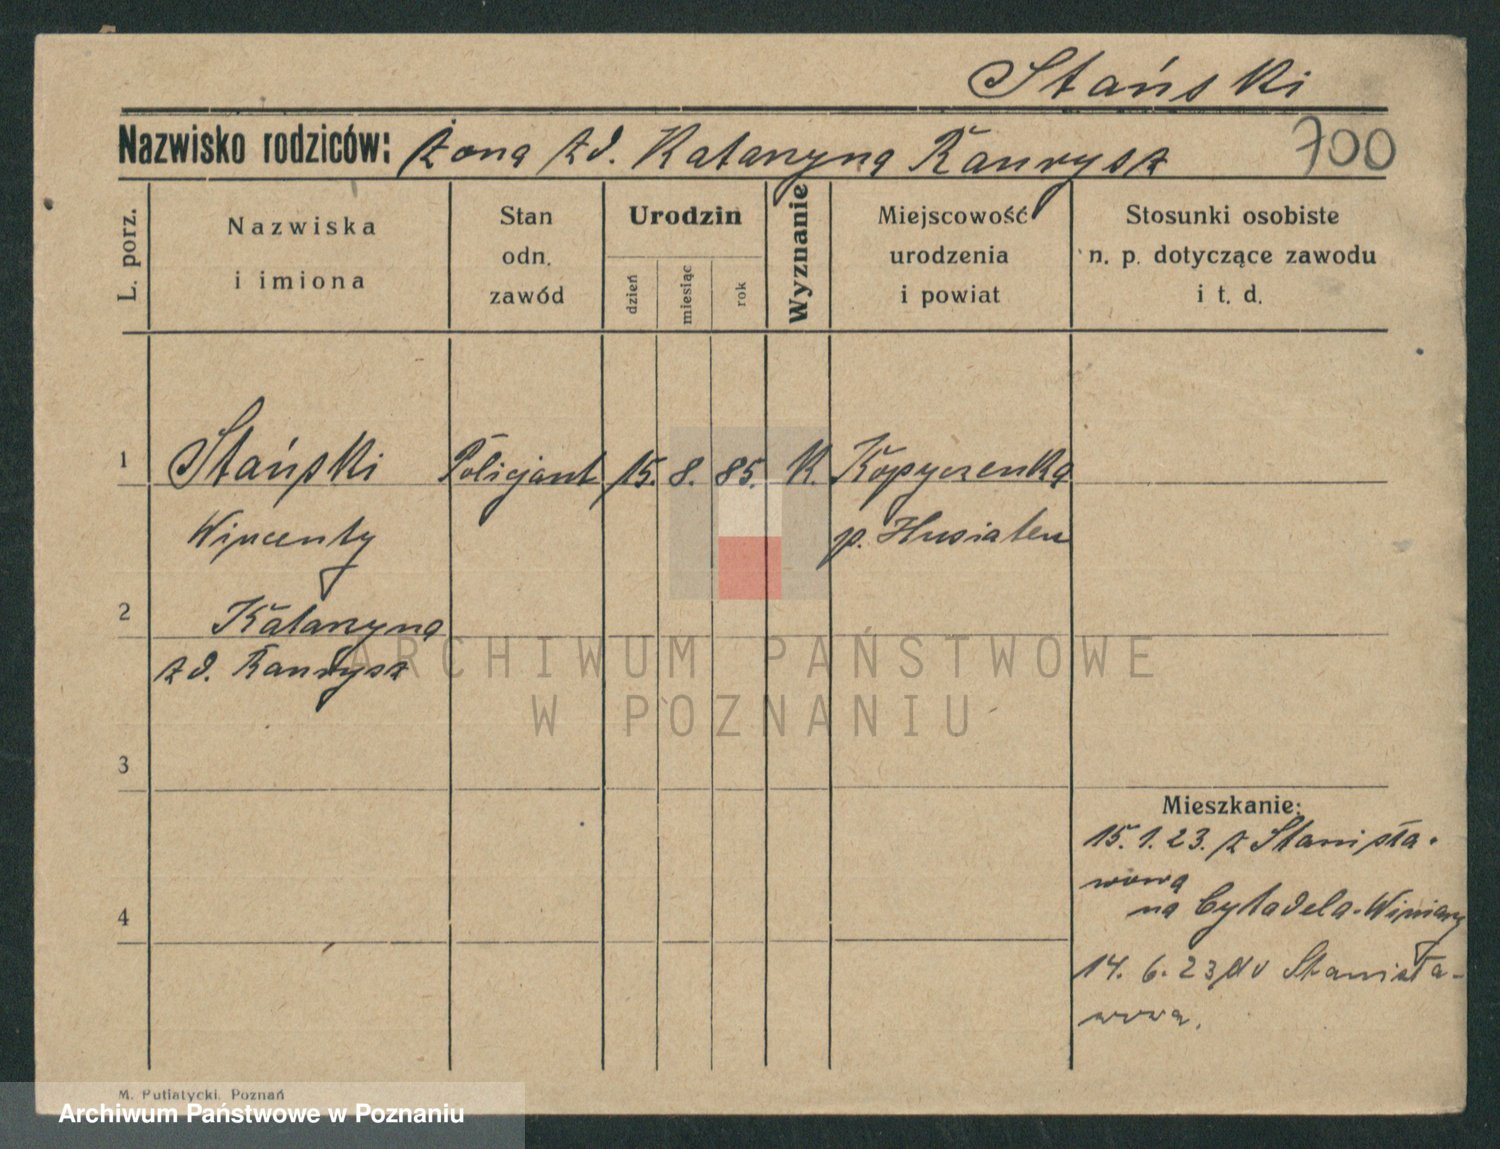 Stański
Nazwisko rodziców: żona zd. Katarzyna
700
L. porz.
Nazwiska
i imiona
Stan
odn.
zawód
Urodzin
dzień
miesiąc
rok
Wyznanie
Miejscowość
urodzenia
i powiat
Stosunki osobiste
n. p. dotyczące zawodu
i t. d.
1 Stański Policjant 15. 8. 85. K. Kopyczenka
Wincenty p. Husiaten
2 Katarzyna
zd.
3
Mieszkanie:
15. 1. 23. z Stanisła-
wowa
4
na Cytadela-Winiary
14. 6. 23 do Stanisła-
wowa.
M. Putiatycki, Poznań
ARCHIWUM PAŃSTWOWE
W POZNANIU
Archiwum Państwowe w Poznaniu